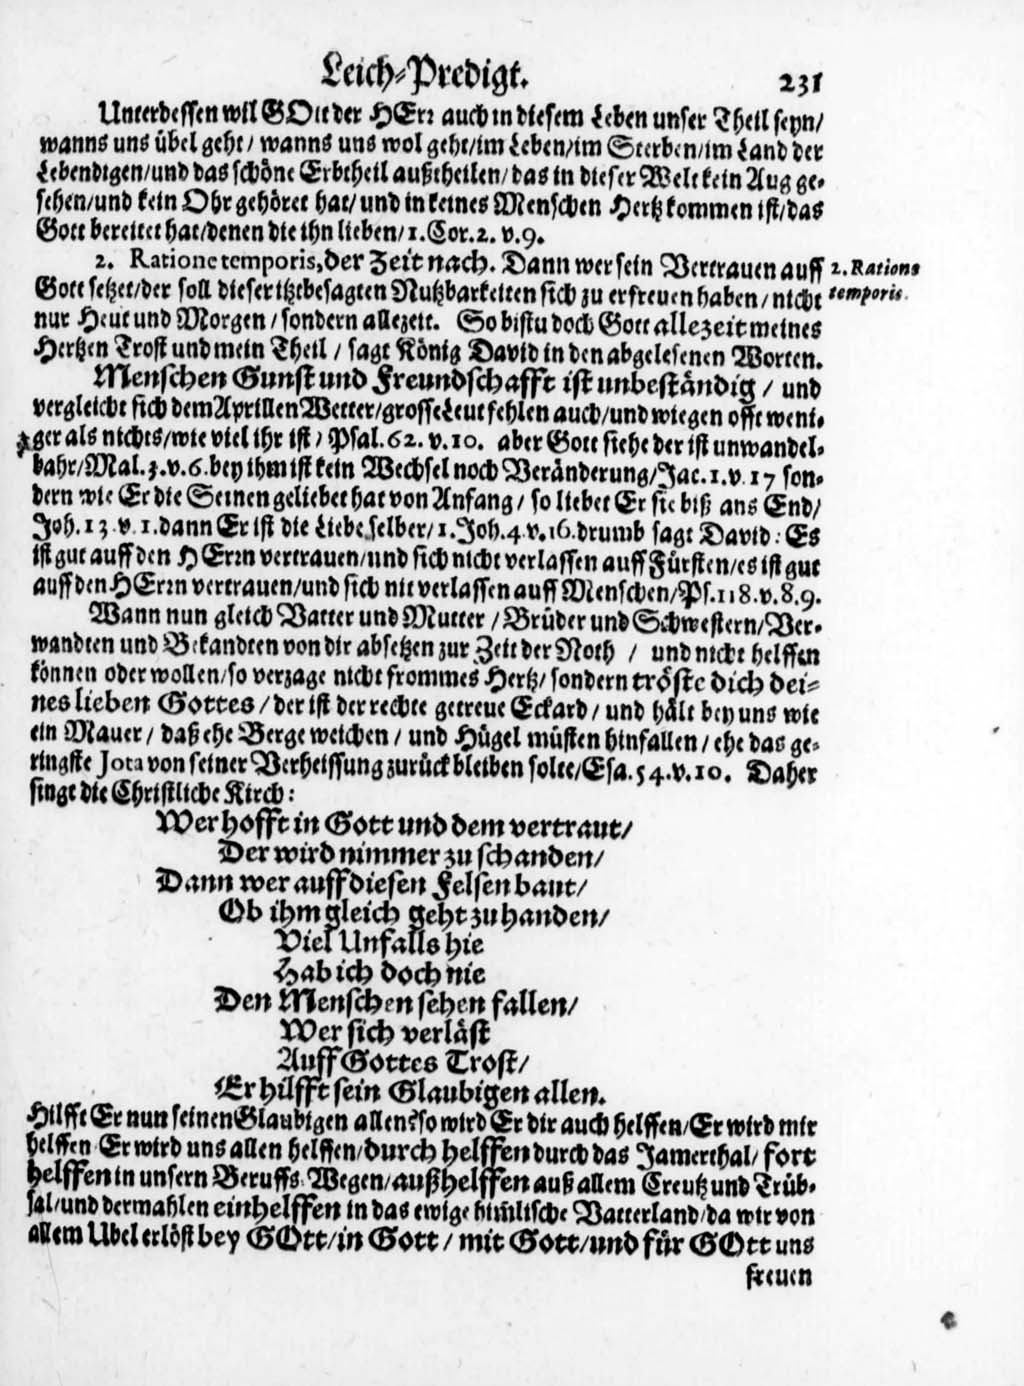 Leich-Predigt. 231
Unterdessen wil GOtt der HErr auch in diesem Leben unser Theil seyn/
wanns uns übel geht/ wanns uns wol geht/im Leben/im Sterben/im Land der
Lebendigen/und das schöne Erbtheil außtheilen/das in dieser Welt kein Aug ge-
sehen/und kein Ohr gehöret hat/ und in keines Menschen Hertz kommen ist/das
Gott bereitet hat/denen die ihn lieben/1.Cor.2. v.9.
2. Ratione temporis, der Zeit nach. Dann wer sein Vertrauen auff
2. Ratione
Gott setzet/der soll dieser itztbesagten Nutzbarkeiten sich zu erfreuen haben/nicht
temporis.
nur Heut und Morgen/sondern allezeit. So bistu doch Gott allezeit meines
Hertzen Trost und mein Theil / sagt König David in den abgelesenen Worten.
Menschen Gunst und Freundschafft ist unbeständig / und
vergleicht sich dem Aprillen Wetter/grosse Leut fehlen auch/und wiegen offt weni-
ger als nichts/wie viel ihr ist/ Psal. 62. v.10. aber Gott siehe der ist unwandel-
bahr/Mal.3.v.6.bey ihm ist kein Wechsel noch Veränderung/Jac.1.v.17 son-
dern wie Er die Seinen geliebet hat von Anfang / so liebet Er sie biß ans End/
Joh.13.v.1.dann Er ist die Liebe selber/1.Joh.4.v.16.drumb sagt David: Es
ist gut auff den HErrn vertrauen/und sich nicht verlassen auff Fürsten/es ist gut
auff den HErrn vertrauen/und sich nit verlassen auff Menschen/Ps.118.v.8.9.
Wann nun gleich Vatter und Mutter / Brüder und Schwestern/Ver-
wandten und Bekandten von dir absetzen zur Zeit der Noth / und nicht helffen
können oder wollen/so verzage nicht frommes Hertz/ sondern tröste dich dei-
nes lieben Gottes/der ist der rechte getreue Eckard/ und hält bey uns wie
ein Mauer/ daß ehe Berge weichen / und Hügel müsten hinfallen/ ehe das ge-
ringste Jota von seiner Verheissung zurück bleiben solte/Esa.54.v.10. Daher
singt die Christliche Kirch:
Wer hofft in Gott und dem vertraut/
Der wird nimmer zu schanden/
Dann wer auff diesen Felsen baut/
Ob ihm gleich geht zuhanden/
Viel Unfalls hie
Hab ich doch nie
Den Menschen sehen fallen/
Wer sich verläst
Auff Gottes Trost/
Er hilfft sein Glaubigen allen.
Hilfft Er nun seinen Glaubigen allen? so wird Er dir auch helffen/Er wird mir
helffen Er wird uns allen helffen/durch helffen durch das Jamerthal/ fort
helffen in unsern Beruffs-Wegen/außhelffen auß allem Creutz und Trüb-
sal/und dermahlen einhelffen in das ewige him̃lische Vatterland/da wir von
allem Ubel erlöst bey GOtt/in Gott / mit Gott/und für GOtt uns
freuen